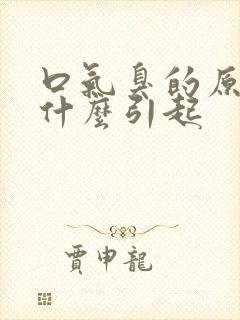 口氣臭的原
什麼引起
賈申龍